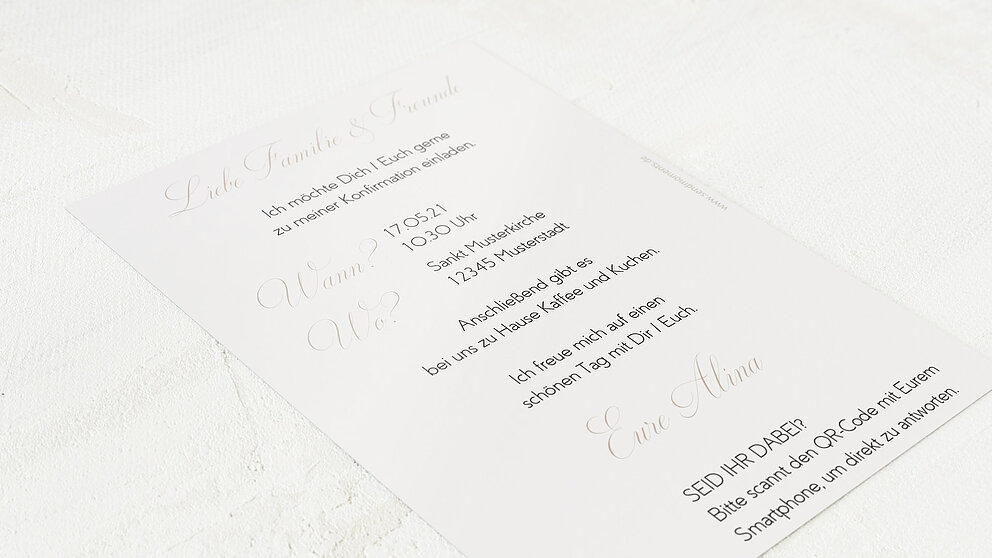 Liebe Familie & Freunde
Ich möchte Dich / Euch gerne
zu meiner Konfirmation einladen.
Wann?
17.05.21
10.30 Uhr
Wo?
Sankt Musterkirche
12345 Musterstadt
Anschließend gibt es
bei uns zu Hause Kaffee und Kuchen.
Ich freue mich auf einen
schönen Tag mit Dir / Euch.
Eure Alina
SEID IHR DABEI?
Bitte scannt den QR-Code mit Eurem
Smartphone, um direkt zu antworten.
www.sendmoments.de